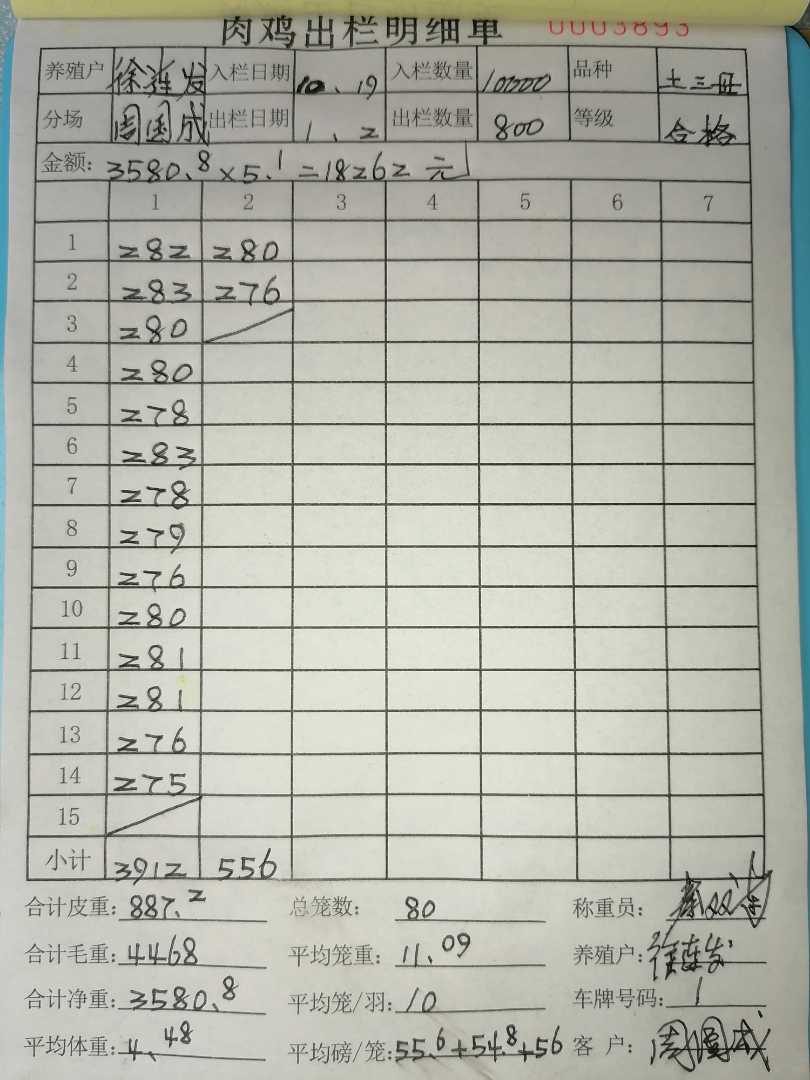 肉鸡出栏明细单 0003893
养殖户 徐连发 入栏日期 10、19 入栏数量 10300 品种 土三
分场 周国成 出栏日期 1、2 出栏数量 800 等级 合格
金额: 3580.8×5.1=18262元
1 2 3 4 5 6 7
1 282 280
2 283 276
3 280
4 280
5 278
6 283
7 278
8 279
9 276
10 280
11 281
12 281
13 276
14 275
15
小计 3912 556
合计皮重: 887.2 总笼数: 80 称重员:
合计毛重: 4468 平均笼重: 11.09 养殖户: 徐连发
合计净重: 3580.8 平均笼/羽: 10 车牌号码: 1
平均体重: 4.48 平均磅/笼: 55.6+54.8+56 客 户: 周国成